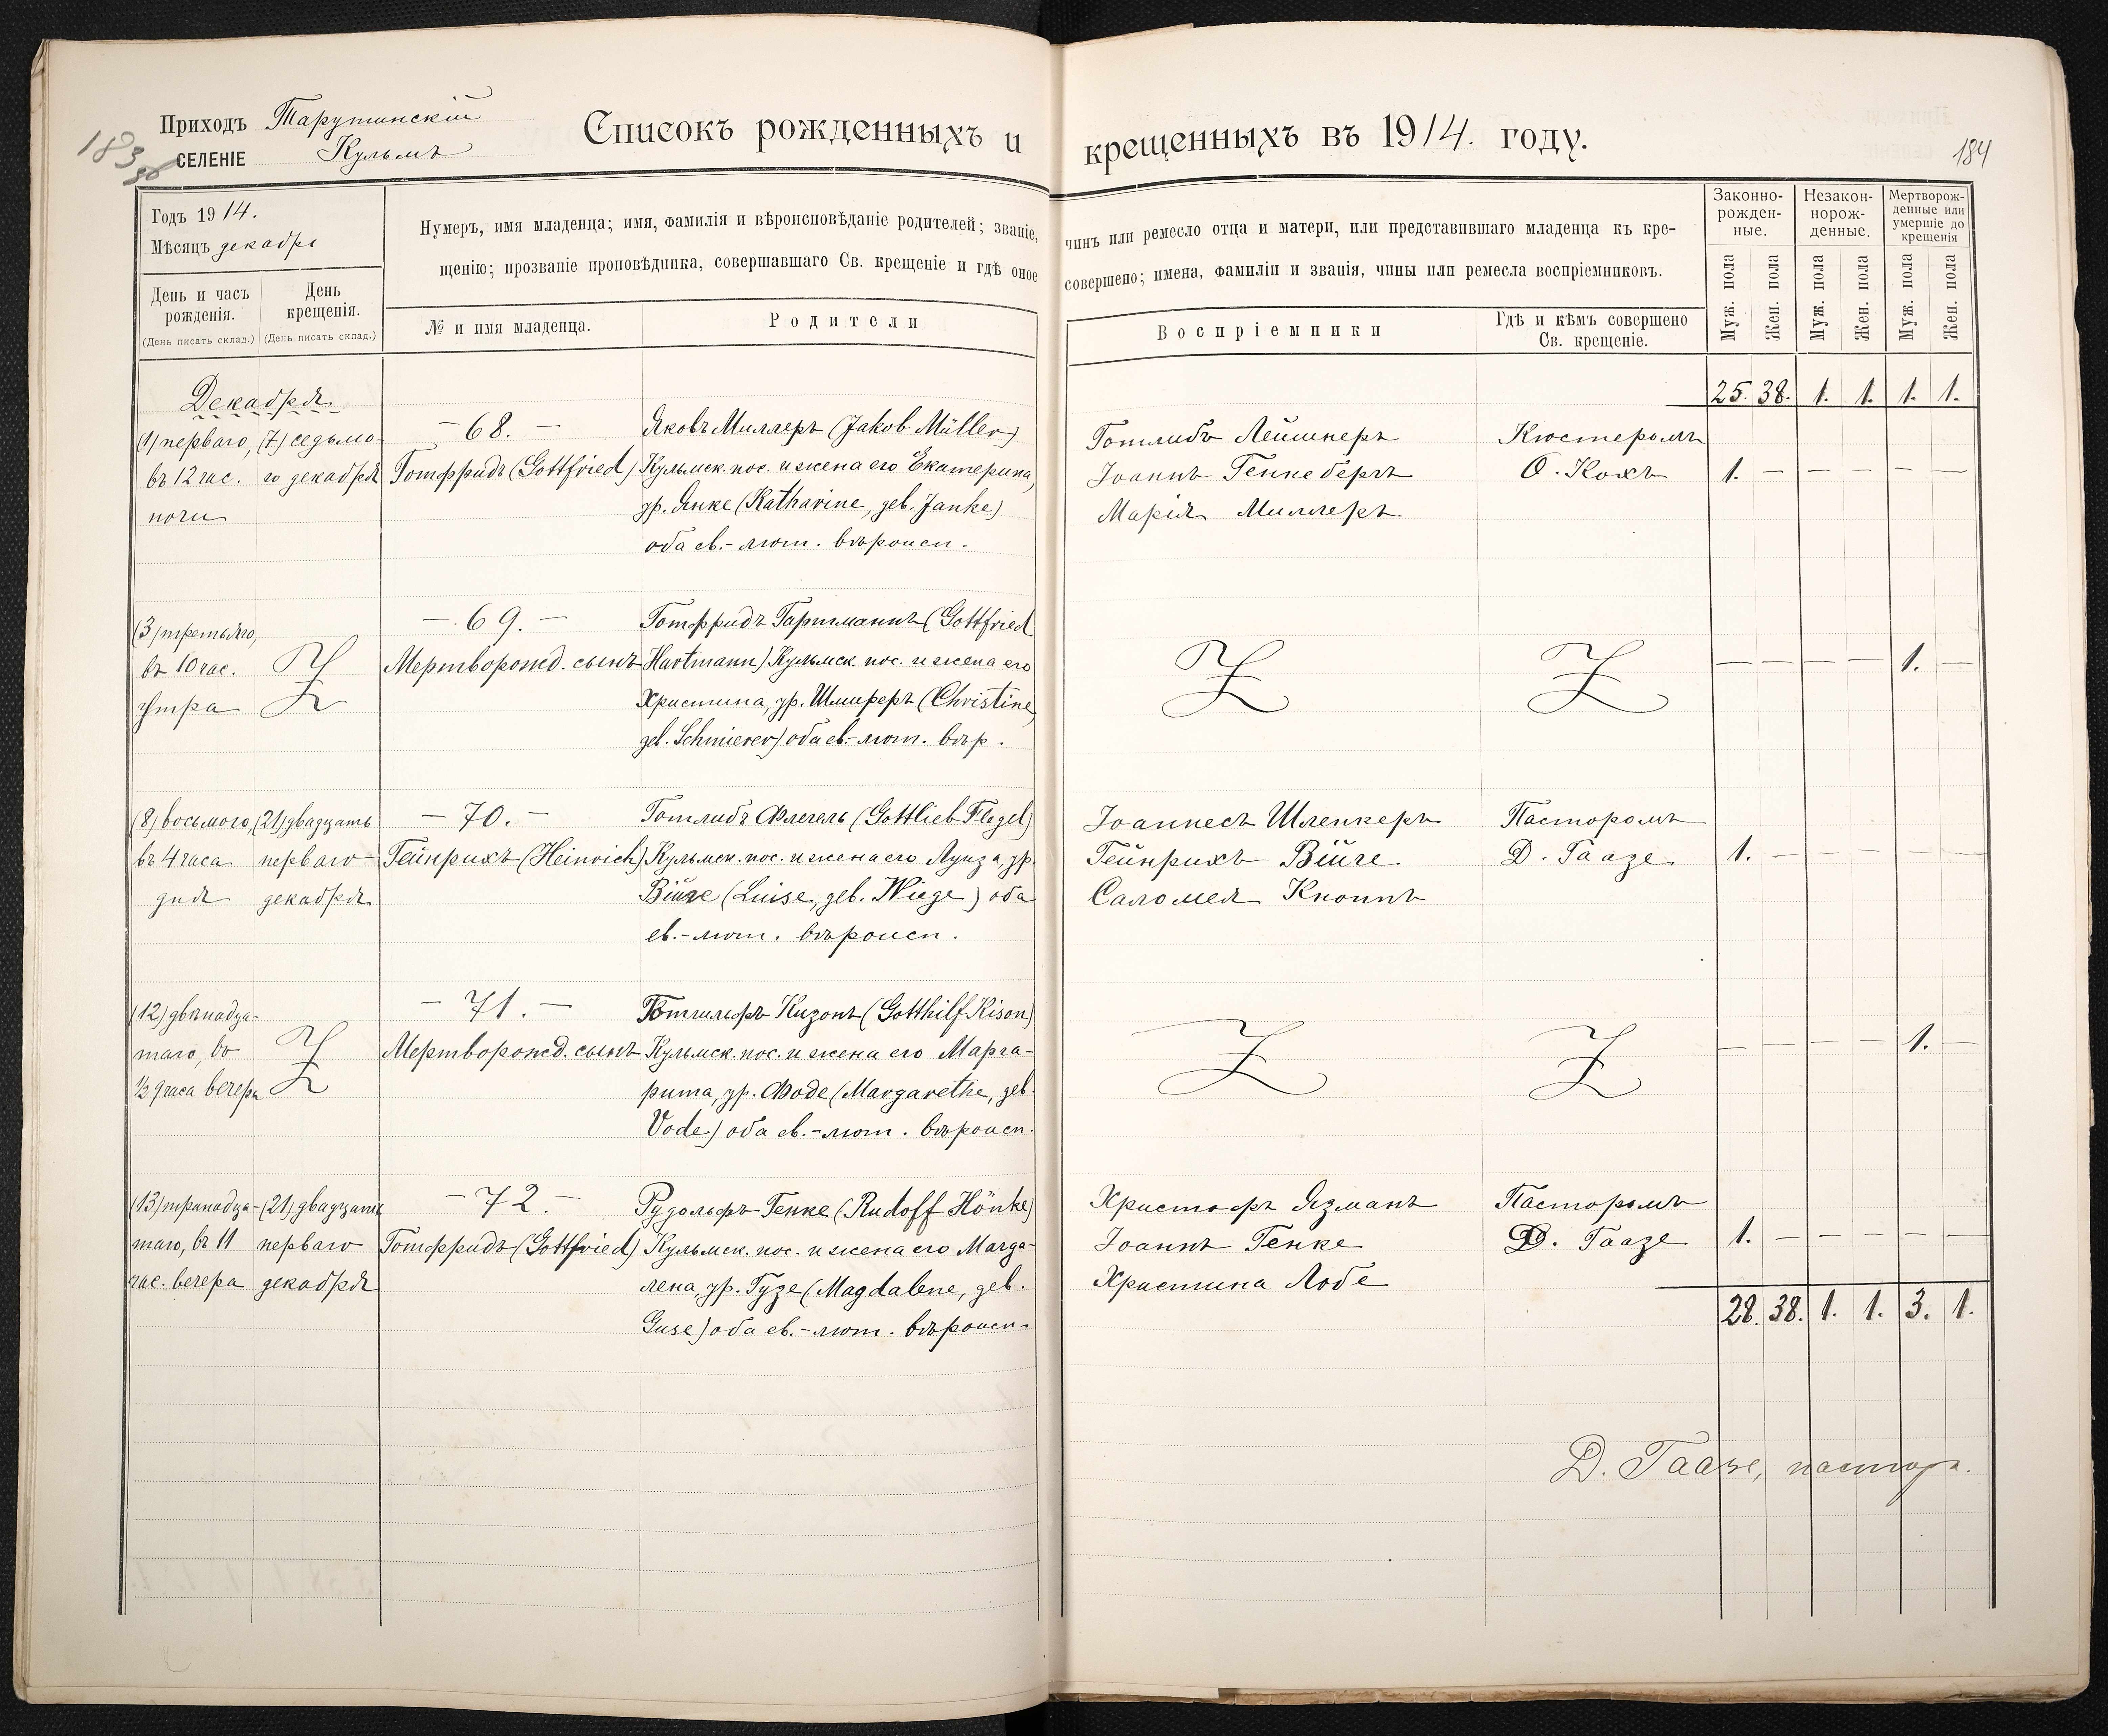 183
Приходъ Тарутинскій
СЕЛЕНІЕ Кульмъ
Списокъ рожденныхъ и крещенныхъ въ 1914. году.
184
Годъ 1914.
Мѣсяцъ декабрь
День и часъ рожденія.
(День писать склад.)
День крещенія.
(День писать склад.)
Нумеръ, имя младенца; имя, фамилія и вѣроисповѣданіе родителей; званіе, чинъ или ремесло отца и матери, или представившаго младенца къ кре-
щенію; прозваніе проповѣдника, совершавшаго Св. крещеніе и гдѣ оное совершено; имена, фамиліи и званія, чины или ремесла воспріемниковъ.
№ и имя младенца.
Родители
Воспріемники
Гдѣ и кѣмъ совершено Св. крещеніе.
Законно-рожден-ные.
Незакон-норож-денные.
Мертворож-денные или умершіе до крещенія
Муж. пола
Жен. пола
Муж. пола
Жен. пола
Муж. пола
Жен. пола
25. 38. 1. 1. 1. 1.
Декабря
(1) перваго,
въ 12 час.
ночи
(7) седьмо-
го декабря
– 68. –
Готфридъ (Gottfried)
Яковъ Миллеръ (Jakob Müller)
Кульмск. пос. и жена его Екатерина,
ур. Янке (Katharine, geb. Janke)
оба ев.-лют. вѣроисп.
Готлибъ Лейшнеръ
Іоаннъ Геннебергъ
Марія Миллеръ
Кюстеромъ
О. Кохъ
1. – – – – –
(3) третьяго,
въ 10 час.
утра
– 69. –
Мертворожд. сынъ
Готфридъ Гартманнъ (Gottfried
Hartmann) Кульмск. пос. и жена его
Христина, ур. Шмиреръ (Christine,
geb. Schmierer) оба ев.-лют. вѣр.
– – – – 1. –
(8) восьмого,
въ 4 часа
дня
(21) двадцать
перваго
декабря
– 70. –
Гейнрихъ (Heinrich)
Готлибъ Флегель (Gottlieb Flegel)
Кульмск. пос. и жена его Луиза, ур.
Вийге (Luise, geb. Wiege) оба
ев.-лют. вѣроисп.
Іоаннесъ Шленкеръ
Гейнрихъ Вийге
Саломея Кноппъ
Пасторомъ
Д. Гаазе
1. – – – – –
(12) двѣнадца-
таго, въ
½ 9 часа вечера
– 71. –
Мертворожд. сынъ
Готгильфъ Кизонъ (Gotthilf Kison)
Кульмск. пос. и жена его Марга-
рита, ур. Фоде (Margarethe, geb.
Vode) оба ев.-лют. вѣроисп.
– – – – 1. –
(13) тринадца-
таго, въ 11
час. вечера
(21) двадцать
перваго
декабря
– 72. –
Готфридъ (Gottfried)
Рудольфъ Генке (Rudolf Hönke)
Кульмск. пос. и жена его Магда-
лена, ур. Гузе (Magdalene, geb.
Guse) оба ев.-лют. вѣроисп.
Христофъ Язманъ
Іоаннъ Генке
Христина Лобе
Пасторомъ
Д. Гаазе
1. – – – – –
28. 38. 1. 1. 3. 1.
Д. Гаазе, пасторъ.